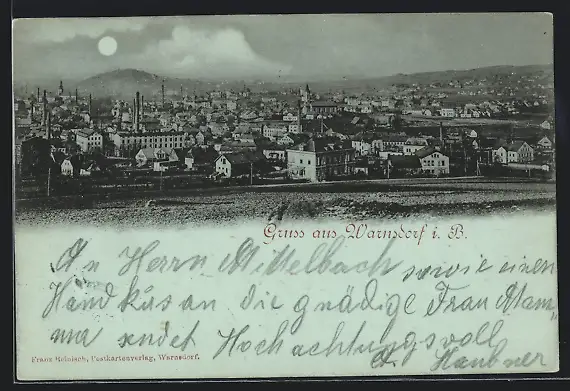 Gruss aus Warnsdorf i. B.
An Herrn Mittelbach sowie einen
Handkuss an die gnädige Frau Mam-
ma sendet Hochachtungsvoll
A. Haubner
Franz Reinisch, Postkartenverlag, Warnsdorf.